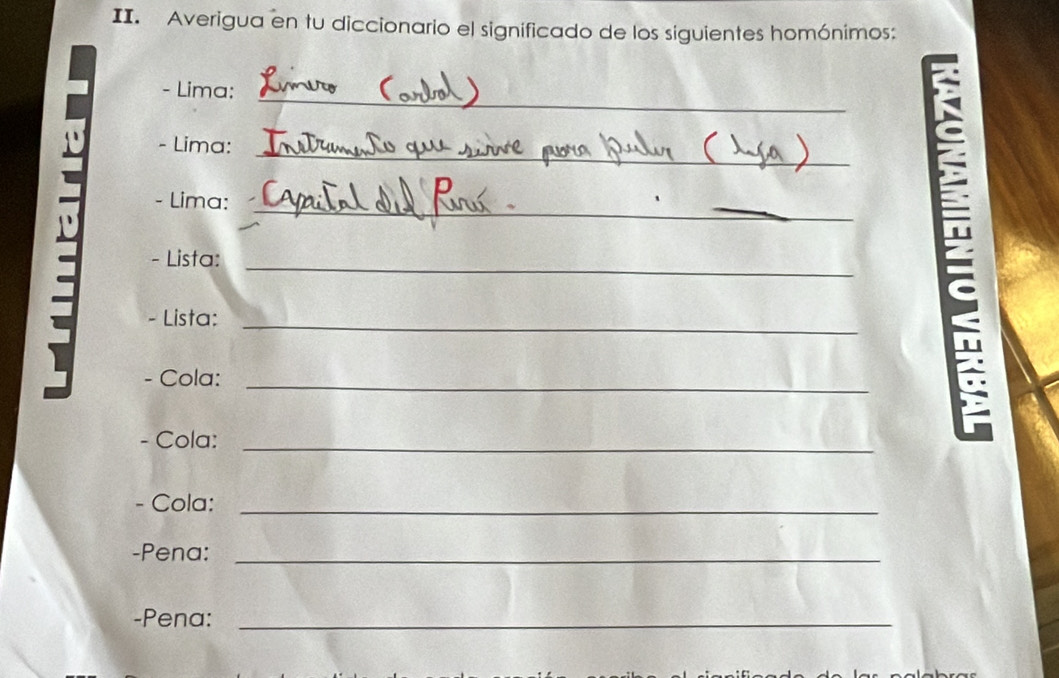 II. Averigua en tu diccionario el significado de los siguientes homónimos:
- Lima: Limero (arbol)
- Lima: Instrumento que sirve para pulir (lija)
- Lima: Capital del Perú.
- Lista:
- Lista:
- Cola:
- Cola:
- Cola:
-Pena:
-Pena:
Primaria
RAZONAMIENTO VERBAL